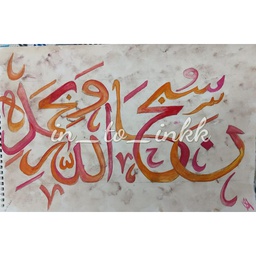 سبحان الله وبحمده
in_to_inkk